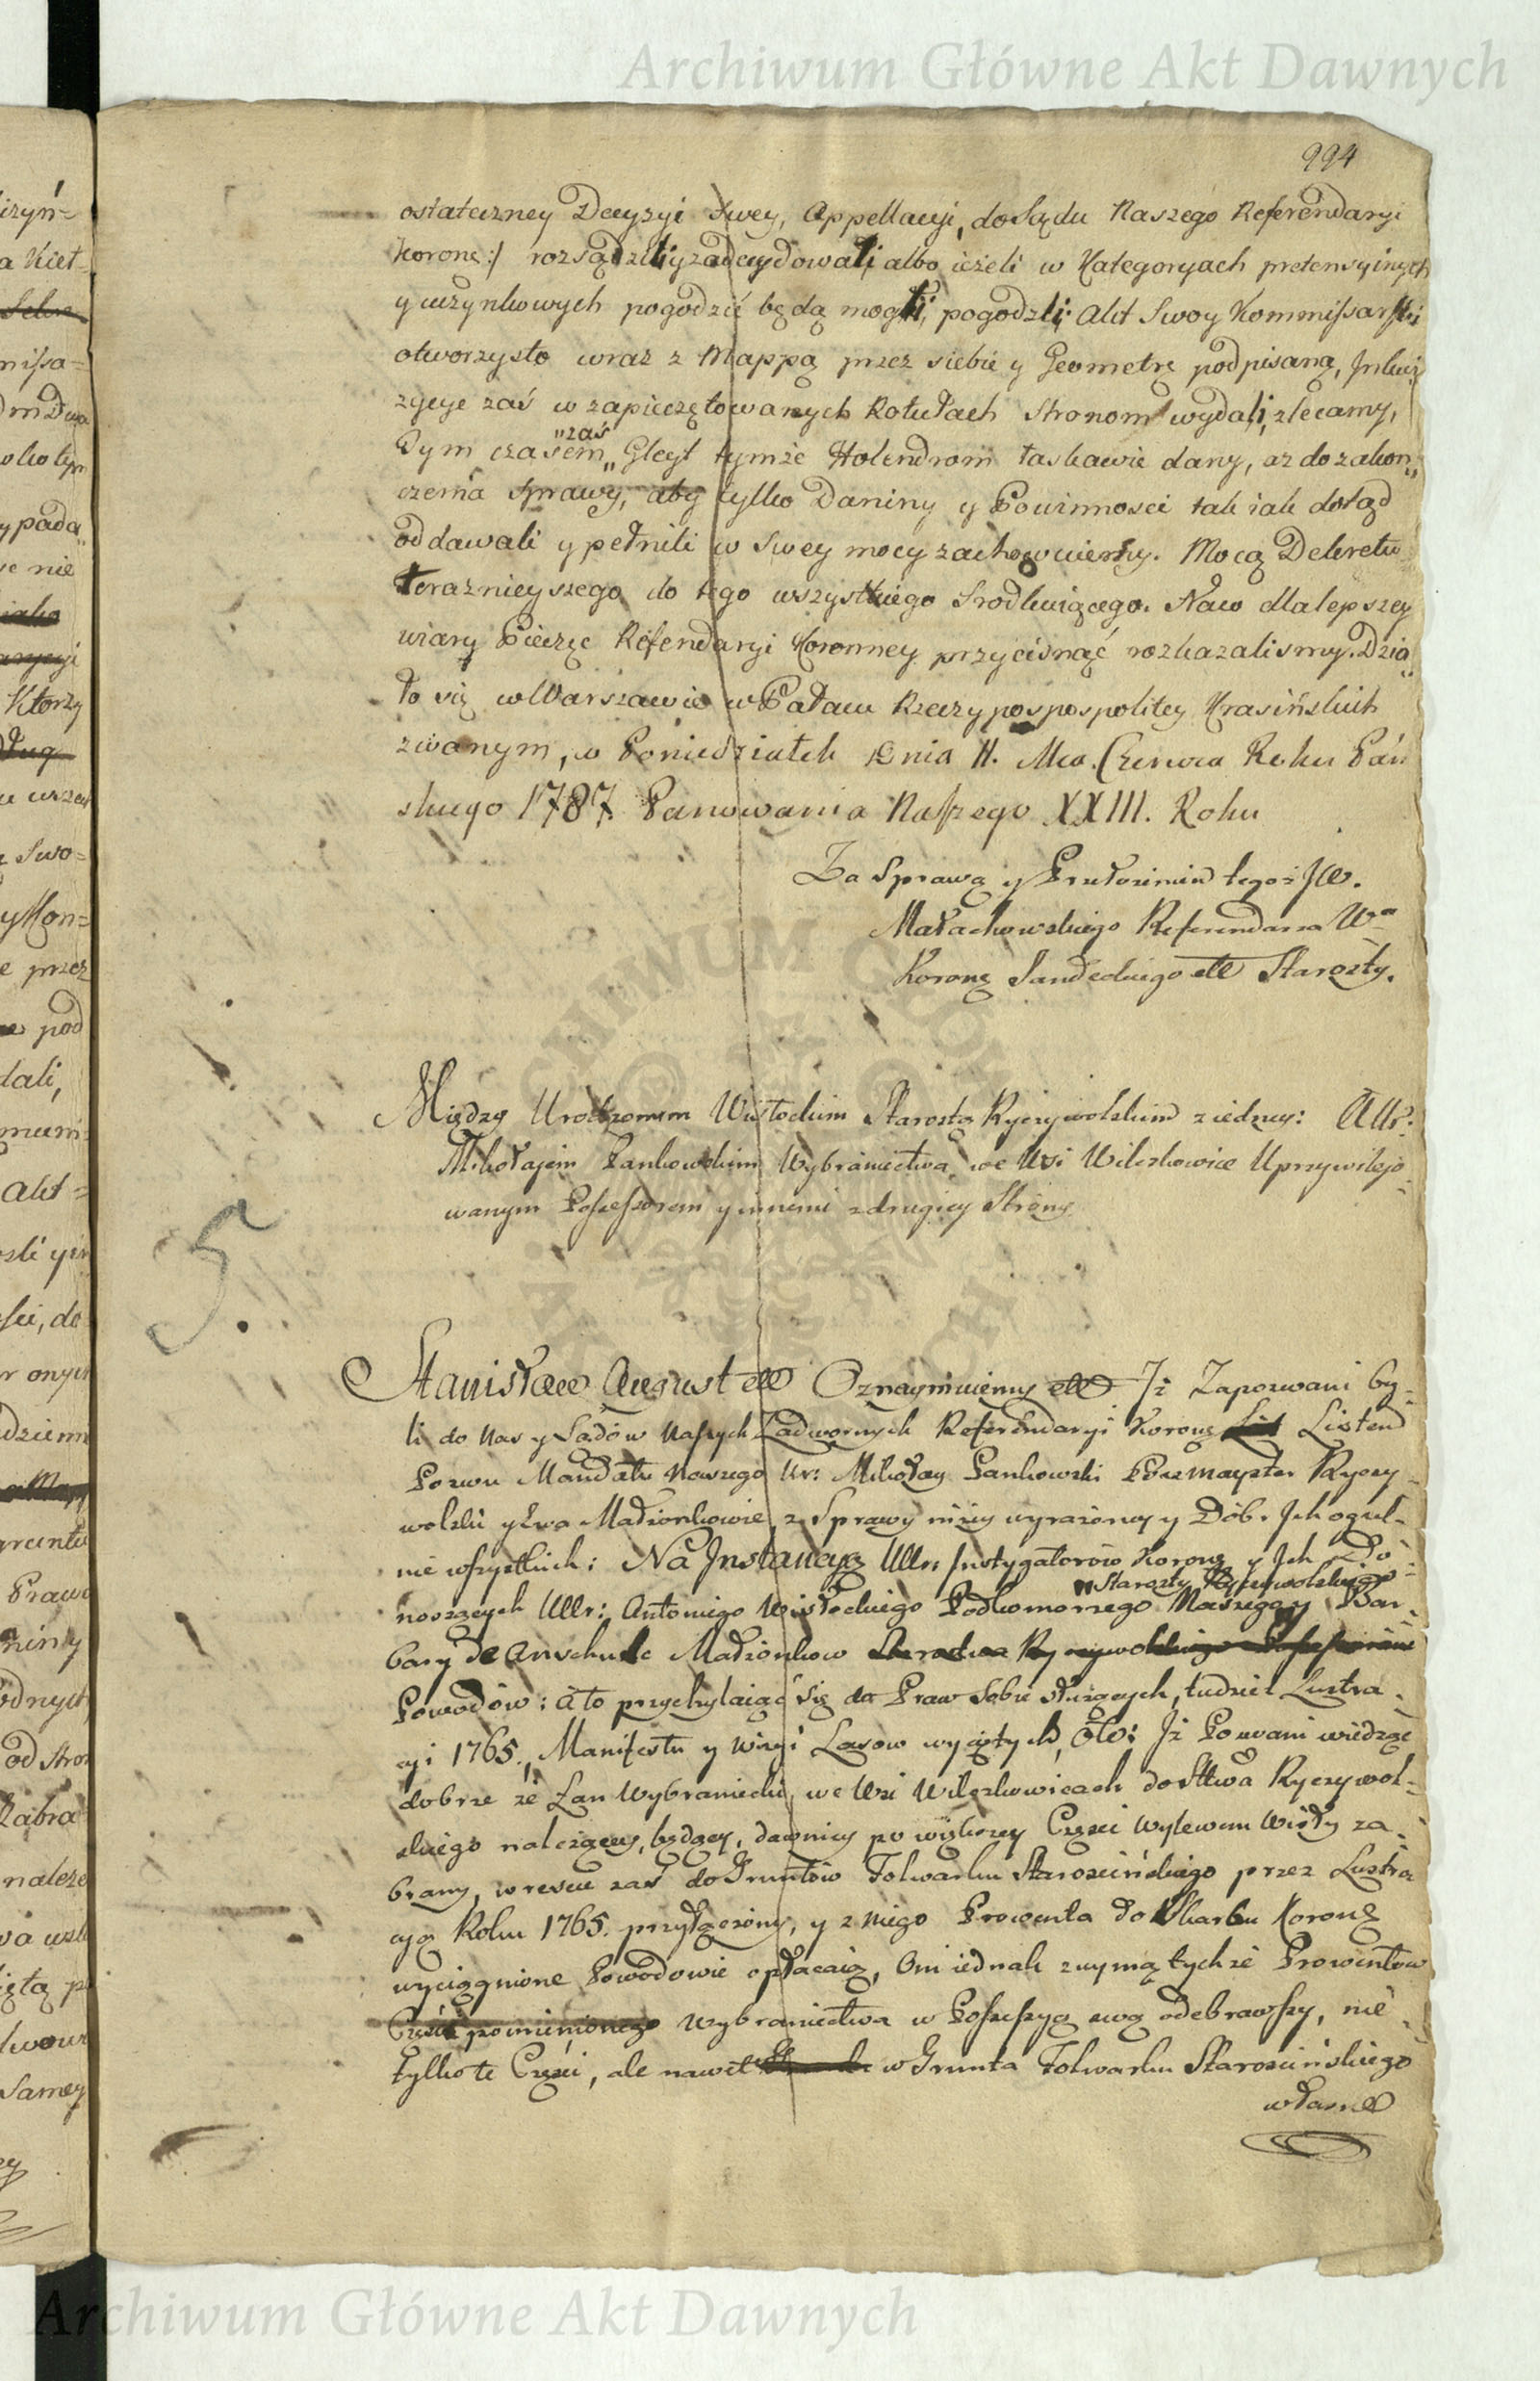 Archiwum Główne Akt Dawnych
994
ostateczney Decyzyi Swey, Appellacyi, do Sądu Naszego Referendaryi
Koronę:/ rozsądzili y zadecydowali albo ieżeli w Kategoryach pretensyinych
y uczynkowych pogodzić będą mogli, pogodzili. Akt Swoy Kommissarski
otworzysto wraz z Mappą przez siebie y Geometrę podpisaną, Inkwi
zycye zaś w zapieczętowanych Rotułach Stronom wydali, zlecamy,
"zaś
Tym czasem„ Gleyt tymże Holendrom łaskawie dany, az do zakon„
czenia Sprawy, aby tylko Daniny y Powinnosci tak iak dotąd
oddawali y pełnili w Swey mocy zachowuiemy. Mocą Dekretu
teraznieyszego do tego wszystkiego Srodkuiącego. Naco dla lepszey
wiary Pieczęc Referendaryi Koronney przycisnąć rozkazalismy. Dzia„
ło się w Warszawie w Pałacu Rzeczypospospolitey Krasińskich
zwanym, w Poniedziałek Dnia 11. Mca. Czerwca Roku Pań
skiego 1787. Panowania Naszego XXIII. Roku
Za Sprawą y Przełożeniem tegoż JW.
Małachowskiego Referendarza W°
Koronę Sandeckiego etc Starosty.
Między Urodzonym Wisłockim Starostą Ryczywolskim z iedney: A Ur:
Mikołajem Pankowskim Wybraniectwa we Wsi Wilczkowice Uprzywilejo-
wanym Possessorem y innemi z drugiey Strony
5.
Stanisław August etc Oznaymuiemy etc Iż Zapozwani by-
li do Nas y Sądów Naszych Zadwornych Referendaryi Koronę Listem
Pozwu Mandatu Naszego Ur: Mikołay Pankowski Poczmayster Ryczy-
wolski y Ewa Małżonkowie, z Sprawy niżey wyrażoney y Dób. Ich ogul-
nie wszystkich: Na Instancyą Ullr: Instygatorów Koronę y Ich Do-
"Starosty Ryczywolskiego
noszących Ullr: Antoniego Wisłockiego Podkomorzego Naszego, y Bar-
bary de Anschutc Małżonkow Starostwa Ryczywolskiego Possessorów
Powodów: A to przychylaiąc się do Praw Sobie słuzących, tudzież Lustra-
cyi 1765., Manifestu y Wizyi Lasow wyciętych, Oto: Iż Pozwani wiedząc
dobrze że Łan Wybraniecki, we Wsi Wilczkowicach do Sttwa Ryczywol-
skiego nalezącey, będący, dawniey po większey Części Wylewem Wisły za-
brany, w reszcie zaś do Gruntów Folwarku Starościńskiego przez Lustra
cyą Roku 1765. przyłączony, y z niego Prowenta do Skarbu Koronę
wyciągnione Powodowie opłacaią, Oni iednak z nymą tychże Prowentow
Część pomienionego Wybraniectwa w Possessyą swą odebrawszy, nie
tylko te Części, ale nawet w Grunta Folwarku Staroscińskiego
własne
Archiwum Główne Akt Dawnych